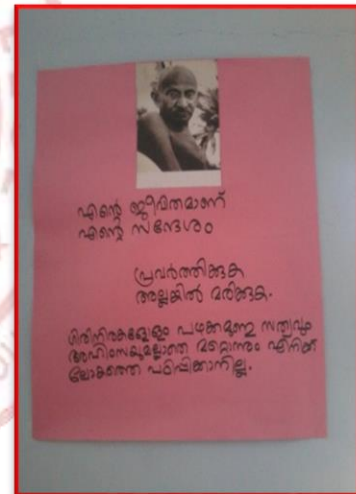 എന്റെ ജീവിതമാണ്
എന്റെ സന്ദേശം
പ്രവർത്തിക്കുക
അല്ലങ്കിൽ മരിക്കുക.
ഗിരിനിരകളോളം പഴക്കമുണ്ടു സത്യവും
അഹിംസയുമല്ലാതെ മറ്റൊന്നും എനിക്ക്
ലോകത്തെ പഠിപ്പിക്കാനില്ല.